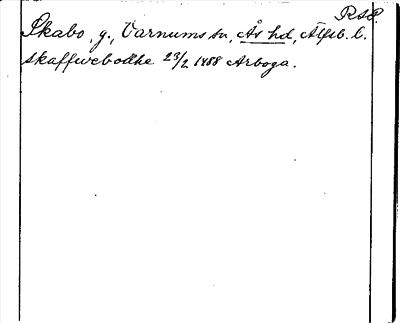 RSP.
Skabo, g., Varnums sn, Ås hd, Älfsb. l.
skaffwebodhe 23/2 1488 Arboga.